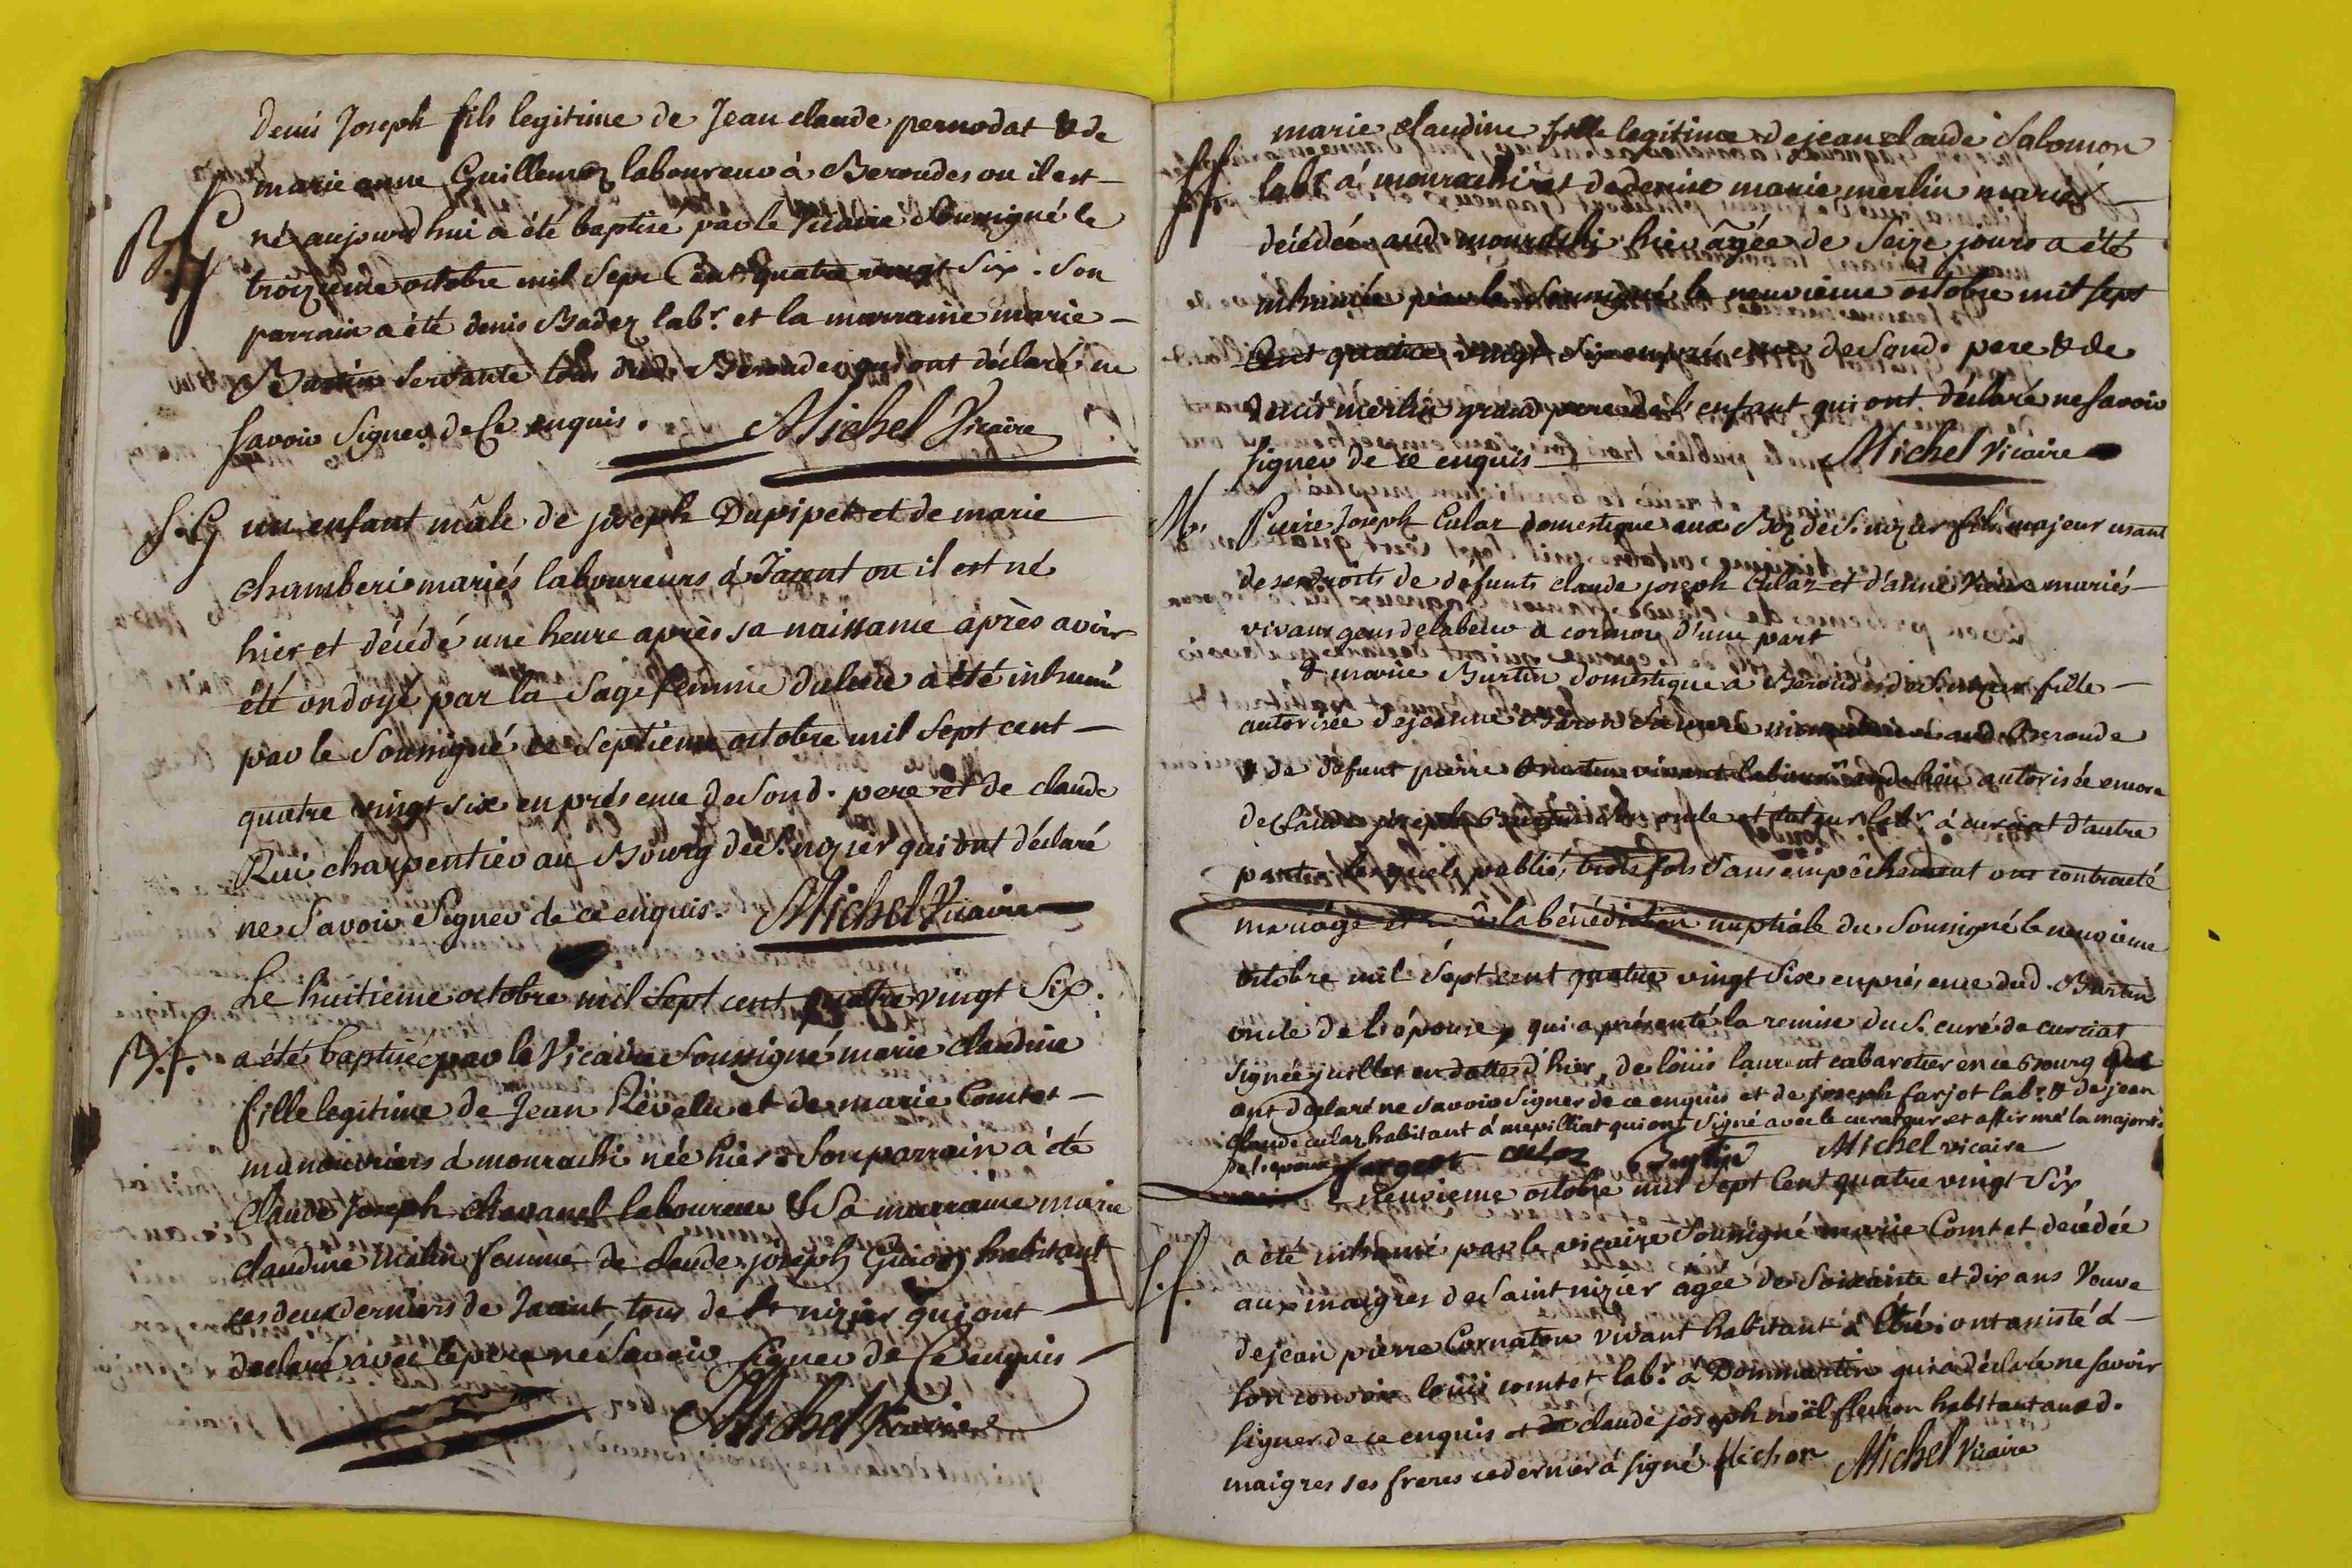 Denis Joseph fils legitime de Jean claude pernodat & de
marie anne Guillemoz laboureurs à Beroudes ou il est
B. f. né aujourd'hui a été baptisé par le Vicaire Soussigné le
troizieme octobre mil Sept Cent quatre vingt Six. Son
parrain a été denis Badez labr. et la marraine marie
Burtin Servante tous dud. Beroudes qui ont déclaré ne
Savoir Signer de Ce enquis. Michel Vicaire
S. G un enfant mâle de joseph Dupipet et de marie
chamberi mariés laboureurs à Jacent ou il est né
hier et décédé une heure après sa naissance après avoir
été ondoyé par la Sage femme du lieu a été inhumé
par le Soussigné ce Septieme octobre mil Sept cent
quatre vingt six en présence de Sond. pere et de claude
Rui charpentier au Bourg de St. nizier qui ont déclaré
ne Savoir Signer de ce enquis. Michel Vicaire
Le huitieme octobre mil Sept cent quatre vingt Six.
B. f. a été baptisée par le Vicaire Soussigné marie claudine
fille legitime de Jean Revelu et de marie Comtet
manouvriers à mourachi née hier. Son parrain a été
Claude Joseph chavanel laboureur & Sa marraine marie
claudine Malin femme de claude joseph Guion habitant
ces deux derniers de Jacent tous de St nizier qui ont
declaré avec le pere ne Savoir Signer de Ce enquis
Michel Vicaire
marie claudine fille legitime de jean claude Salomon
S f labr. à mourachi et de denise marie merlin mariés
décédée aud. mourachi hier âgée de Seize jours a été
inhumée par le Soussigné le neuvieme octobre mil Sept
Cent quatre vingt Six en présence de Sond. pere & de
denis merlin grand pere de l'enfant qui ont déclaré ne Savoir
Signer de ce enquis Michel Vicaire
M. Pierre Joseph Culaz domestique aux Boz de St. nizier fils majeur usant
de ses droits de défunts claude joseph Culaz et d'anne mariés
vivans gens de labeur à cormoz d'une part
& marie Burtin domestique à Beroudes de St. nizier fille
autorisée de jeanne Baron Sa mere aud. Beroude
& de défunt pierre Burtin vivant aud. lieu autorisée encore
de claude joseph Burtin Son oncle et tuteur labr. à curciat d'autre
part lesquels publiés trois fois Sans empêchement ont contracté
mariage et la bénédiction nuptiale du Soussigné le neuvieme
octobre mil Sept cent quatre vingt Six en présence dud. Burtin
oncle de l'épouse qui a présenté la remise du S. curé de curciat
Signée juillet en datte d'hier, de loüis laurent cabaretier en ce Bourg qui
ont declaré ne Savoir Signer de ce enquis et de joseph farjot labr. & de jean
claude culaz habitant à mepilliat qui ont Signé avec le curateur et affirmé la majorité
de l'epoux farjeot culaz Burtin Michel vicaire
Le neuvieme octobre mil Sept Cent quatre vingt Six
S. f. a été inhumé par le vicaire Soussigné marie Comtet decédée
aux maigres de Saint nizier agée de Soixante et dix ans Veuve
de jean pierre Cornaton vivant habitant à ont assisté à
Son convoi loüis comtet labr. à Dommartin qui a déclaré ne Savoir
Signer de ce enquis et de claude joseph noël flechon habitant aux d.
maigres ses freres ce dernier a Signé flechon Michel Vicaire